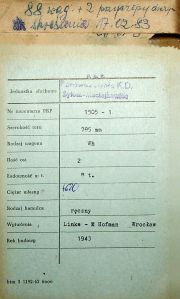 88 wag. + 2 parowozy
skreślenia 17.02.83
Jednostka służbowa
K.D.
Nr inwentarza PKP 1505 - 1
Szerokość toru 785 mm
Rodzaj wagonu Wb
Ilość osi 2
Ładowność w t. 8 t.
Ciężar własny 4670
Rodzaj hamulca ręczny
Wytwórnia Linke - H Hofman Wrocław
Rok budowy 1943